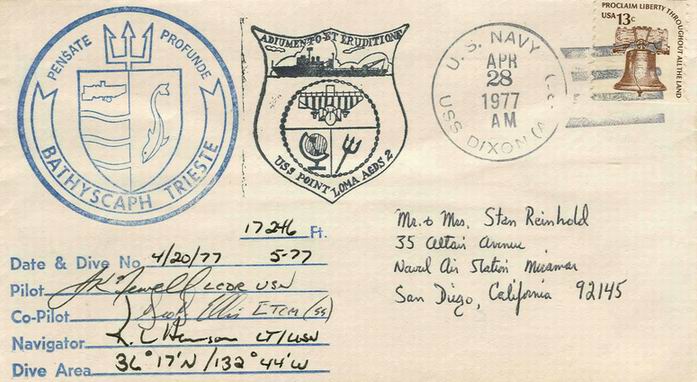 PENSATE PROFUNDE
BATHYSCAPH TRIESTE
ADJUMENTO ET ERUDITIONE
USS POINT LOMA AGDS 2
U. S. NAVY
APR
28
1977
AM
USS DIXON (A
PROCLAIM LIBERTY THROUGHOUT ALL THE LAND
USA 13c
17246 Ft.
Date & Dive No. 4/20/77 5-77
Pilot LCDR USN
Co-Pilot Ellis ETCM (SS)
Navigator LT/USN
Dive Area 36°17'N / 132°44'W
Mr. & Mrs. Stan Reinhold
35 Altair Avenue
Naval Air Station Miramar
San Diego, California 92145